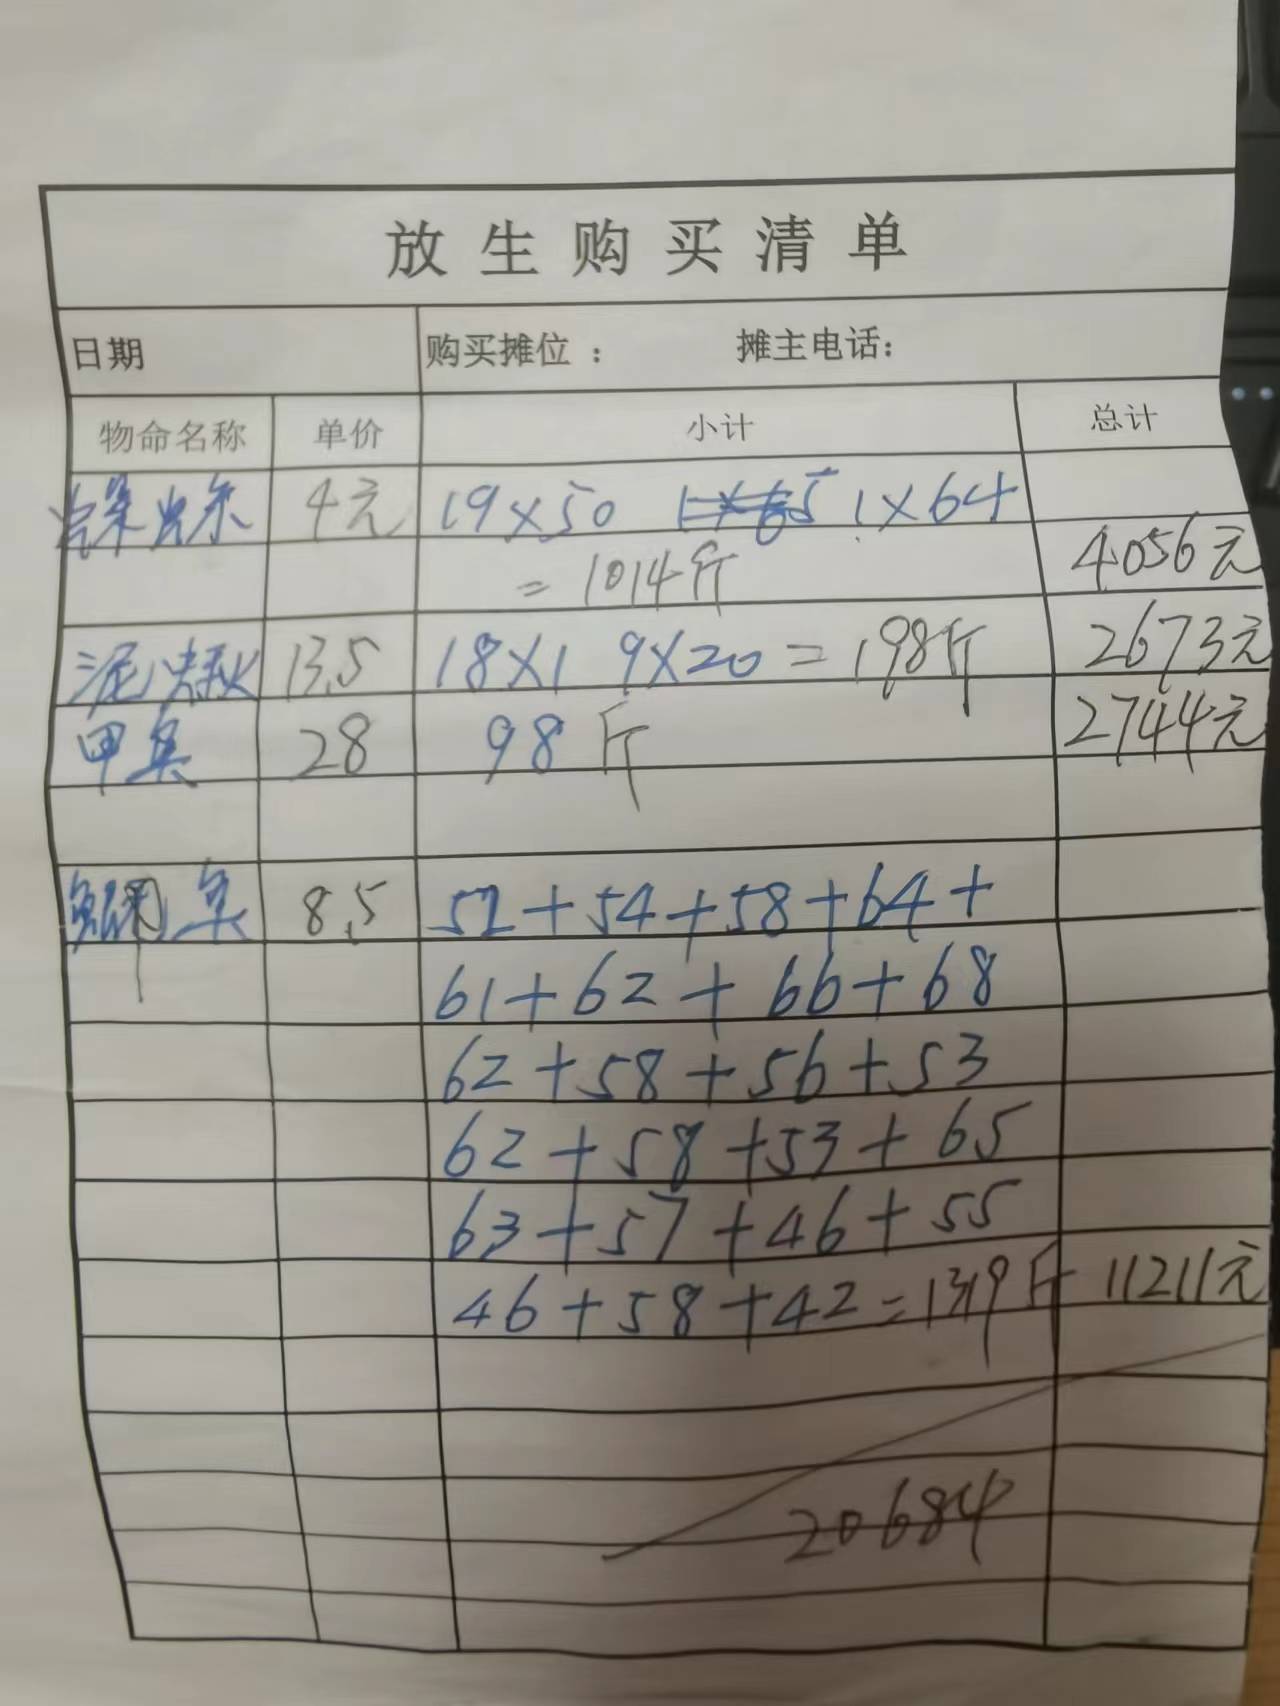 放生购买清单
日期 购买摊位： 摊主电话：
物命名称 单价 小计 总计
4元 19×50 1×64
=1014斤 4056元
泥鳅 13.5 18×1 9×20=198斤 2673元
甲鱼 28 98斤 2744元
鱼 8.5 52+54+58+64+
61+62+66+68
62+58+56+53
62+58+53+65
63+57+46+55
46+58+42=1319斤 11211元
20684